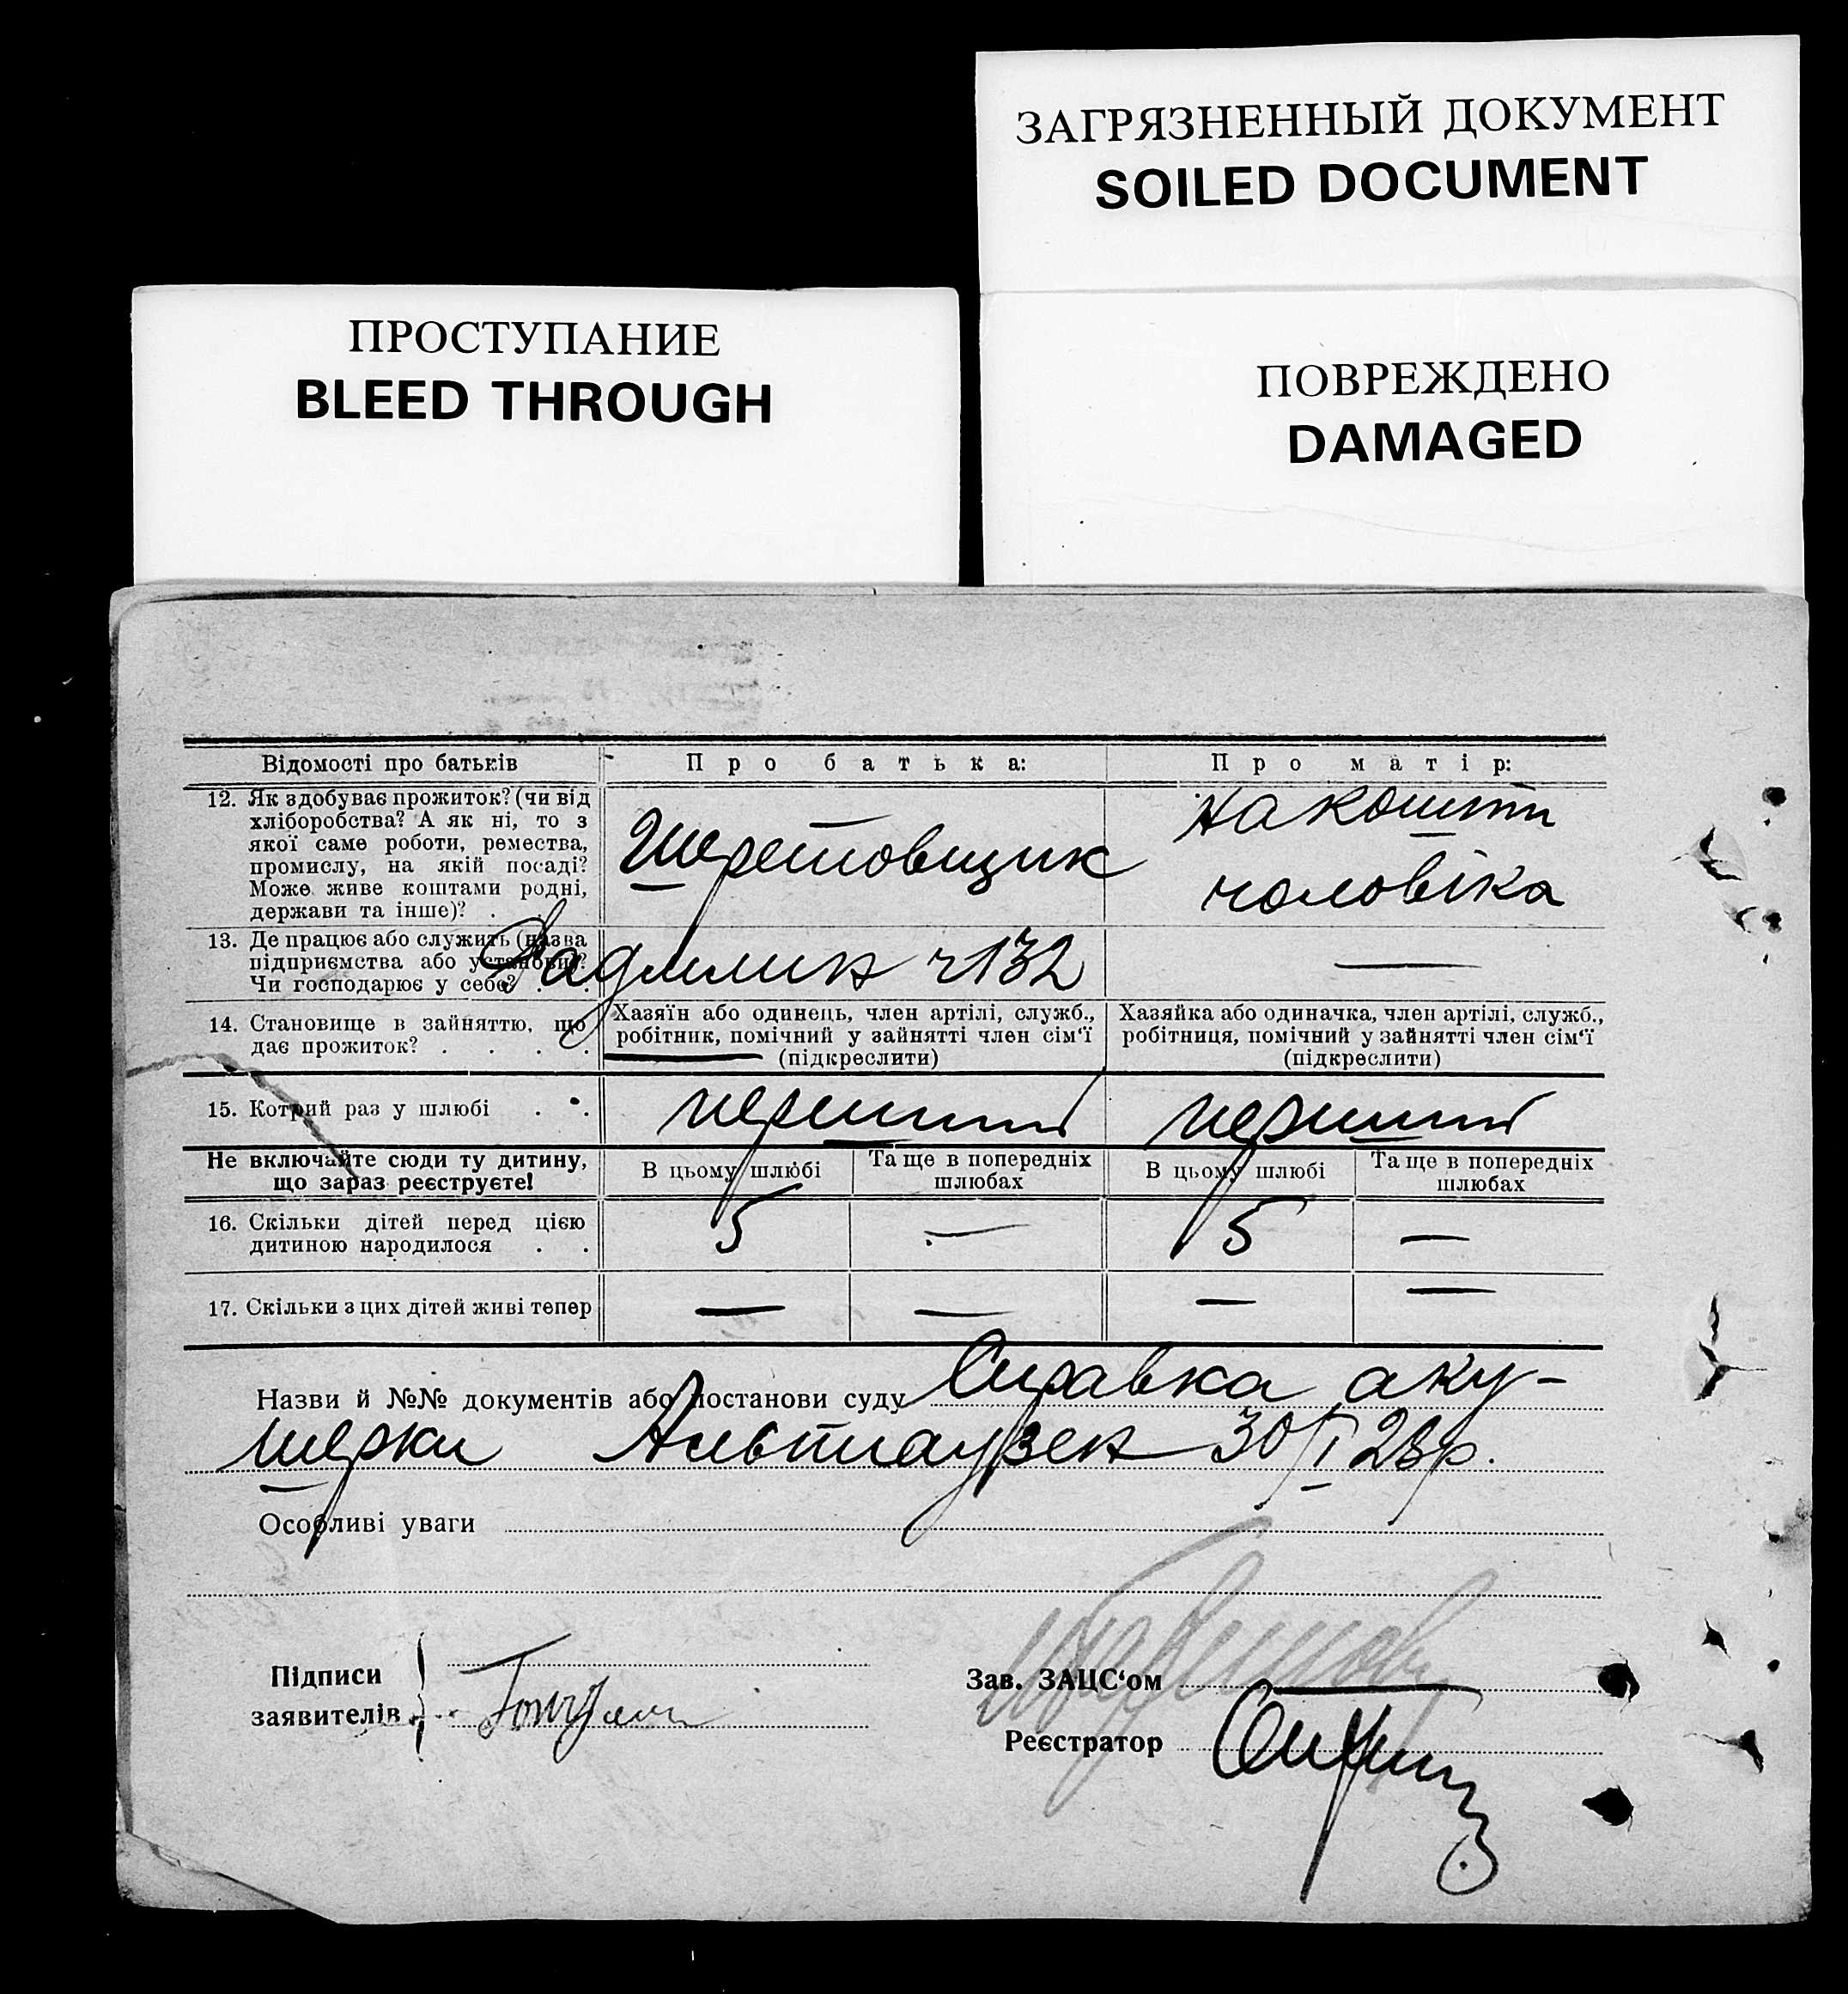 ЗАГРЯЗНЕННЫЙ ДОКУМЕНТ
SOILED DOCUMENT
ПРОСТУПАНИЕ
BLEED THROUGH
ПОВРЕЖДЕНО
DAMAGED
Відомості про батьків
Про батька:
Про матір:
12. Як здобуває прожиток? (чи від
хліборобства? А як ні, то з
якої саме роботи, ремества,
промислу, на якій посаді?
Може живе коштами родні,
держави та інше)? .
Шеретовщик
на кошти
чоловіка
13. Де працює або служить (назва
підприємства або установи)?
Чи господарює у себе? . .
ч132
—
14. Становище в зайняттю, що
дає прожиток? . . . .
Хазяїн або одинець, член артілі, служб.,
робітник, помічний у зайнятті член сім'ї
(підкреслити)
Хазяйка або одиначка, член артілі, служб.,
робітниця, помічний у зайнятті член сім'ї
(підкреслити)
15. Котрий раз у шлюбі . . .
перший
перший
Не включайте сюди ту дитину,
що зараз реєструєте!
В цьому шлюбі
Та ще в попередніх
шлюбах
В цьому шлюбі
Та ще в попередніх
шлюбах
16. Скільки дітей перед цією
дитиною народилося . .
5 — 5 —
17. Скільки з цих дітей живі тепер
— — — —
Назви й №№ документів або постанови суду Справка аку-
шерки 30/I 28р.
Особливі уваги
Підписи
заявителів
Зав. ЗАЦС'ом
Реєстратор